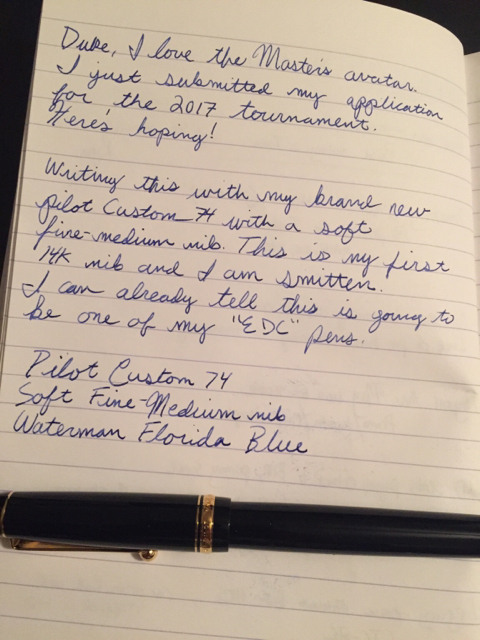 Duke, I love the Masters avatar.
I just submitted my application
for the 2017 tournament.
Here's hoping!
Writing this with my brand new
Pilot Custom 74 with a soft
fine-medium nib. This is my first
14K nib and I am smitten.
I can already tell this is going to
be one of my "EDC" pens.
Pilot Custom 74
Soft Fine-Medium nib
Waterman Florida Blue